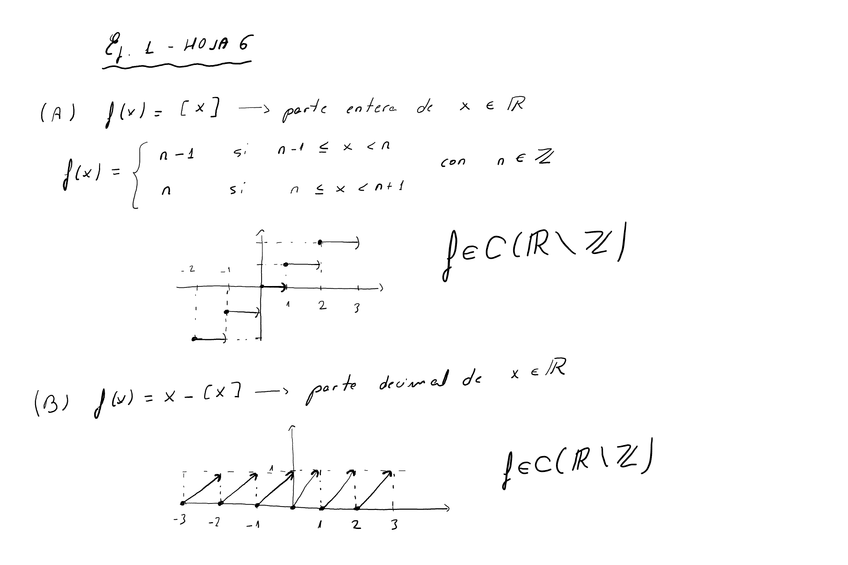 Ej. 1 - HOJA 6
(A) f(x) = [x] → parte entera de x ∈ ℝ
f(x) = { n-1 si n-1 ≤ x < n
n si n ≤ x < n+1
con n ∈ ℤ
f ∈ C(ℝ \ ℤ)
-2 -1
1 2 3
(B) f(x) = x - [x] → parte decimal de x ∈ ℝ
f ∈ C(ℝ \ ℤ)
1
-3 -2 -1 1 2 3